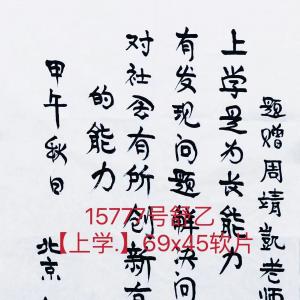 题赠周靖凱老师
上学是为长能力
有发现问题解决问
对社会有所创新
的能力
甲午秋日
北京
15777号舒乙
【上学.】69x45软片